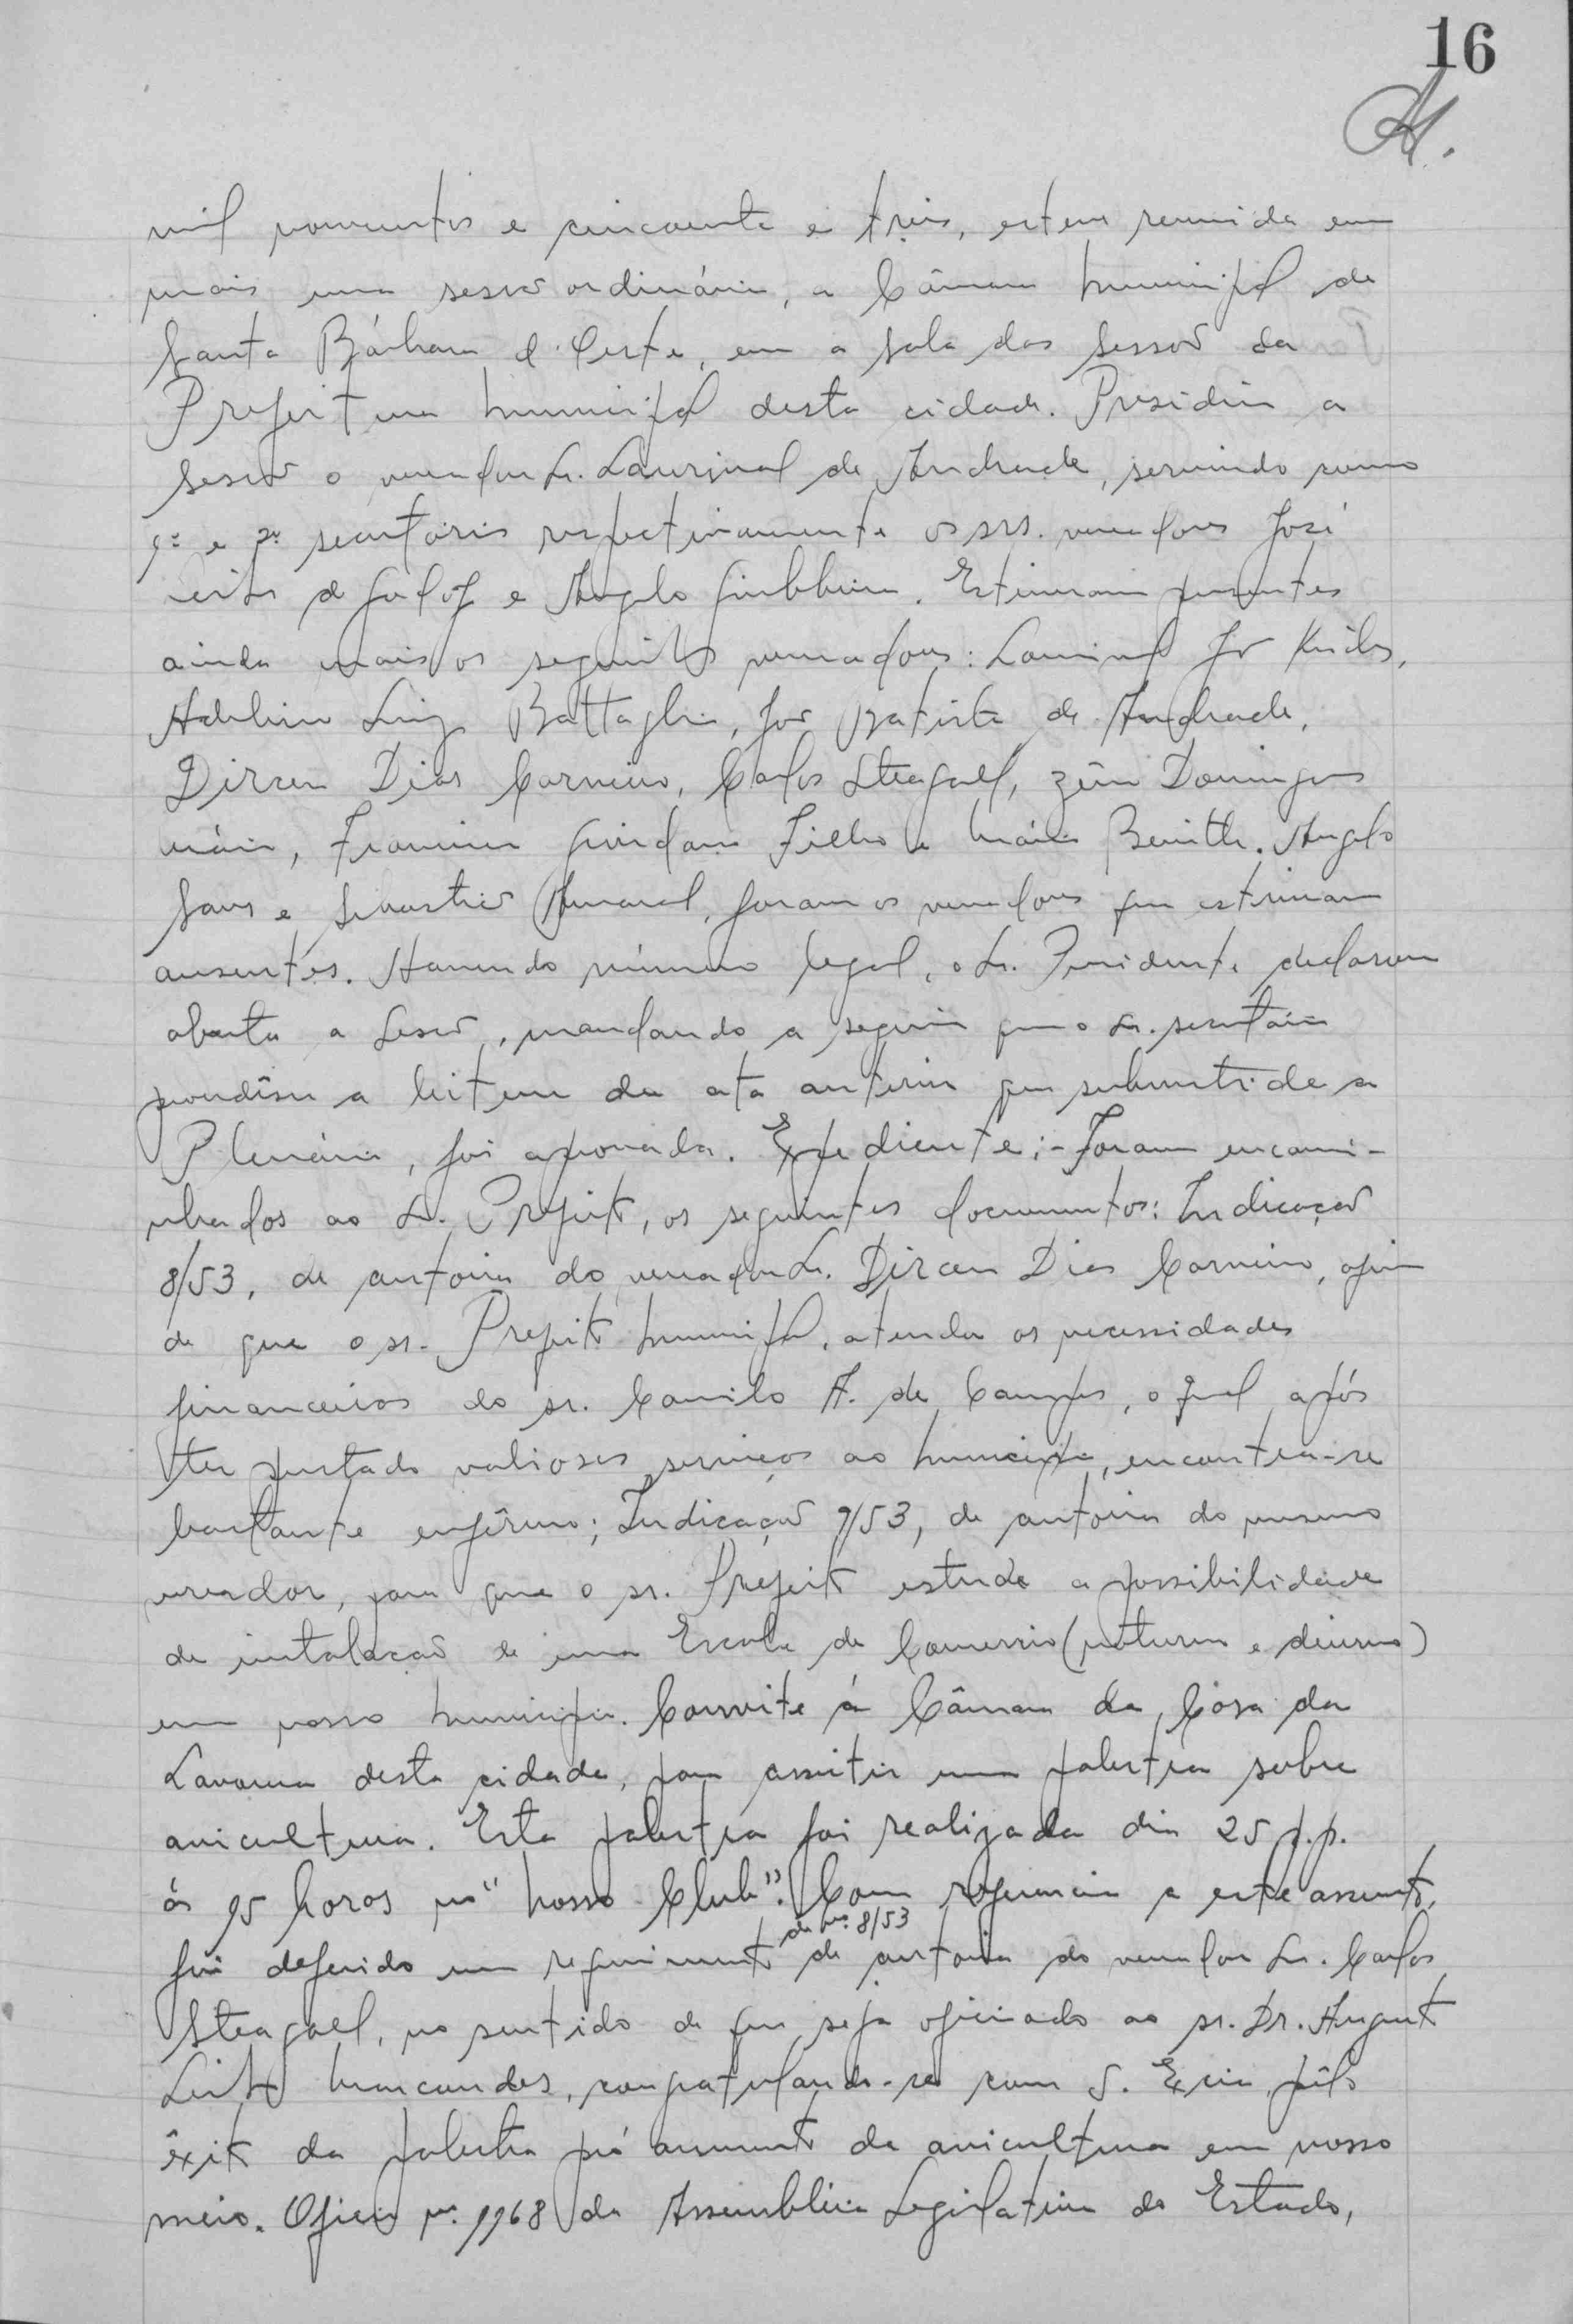 16
mil novecentos e cincoenta e três, esteve reunida em
mais uma sessão ordinária, a Câmara Municipal de
Santa Bárbara d'Oeste, em a sala das Sessões da
Prefeitura Municipal desta cidade. Presidiu a
Sessão o vereador Sr. Lourival de Andrade, servindo como
1º e 2º secretários respectivamente os srs. vereadores José
de Godoy e Angelo Giubbina. Estiveram presentes
ainda mais os seguintes vereadores:
Adelino Luiz Battaglia, João Batista de Andrade,
Dirceu Dias Carneiro, Carlos Steagall, Zéu Domingos
Mário, Francisco Giordano Filho e Mário Benith. Angelo
Sans e Sebastião Amaral, foram os vereadores que estiveram
ausentes. Havendo número legal, o Sr. Presidente declarou
aberta a Sessão, mandando a seguir que o Sr. secretário
procedêsse a leitura da ata anterior que submetida a
Plenário, foi aprovada. Expediente:- Foram encami-
nhados ao Sr. Prefeito, os seguintes documentos: Indicação
8/53, de autoria do vereador Sr. Dirceu Dias Carneiro, afim
de que o sr. Prefeito Municipal, atenda as necessidades
financeiras do sr. Camilo A. de Campos, o qual após
ter prestado valiosos serviços ao Município, encontra-se
bastante enfêrmo; Indicação 9/53, de autoria do mesmo
vereador, para que o sr. Prefeito estude a possibilidade
de instalação de uma Escola de Comercio (noturno e diurno)
em nosso município. Convite á Câmara da Casa da
Lavoura desta cidade, para assitir uma palestra sobre
avicultura. Esta palestra foi realizada dia 25 p.p.
ás 15 horas no "Nosso Club". Com referencia a este assunto,
de nº 8/53
foi deferido um requerimento de autoria do vereador Sr. Carlos
Steagall, no sentido de que seja oficiado ao sr. Dr. August
Leite Marcondes, congratulando-se com S. Excia pêlo
êxito da palestra pró aumento da avicultura em nosso
meio. Oficio nº 1168 da Assembléia Legislativa do Estado,